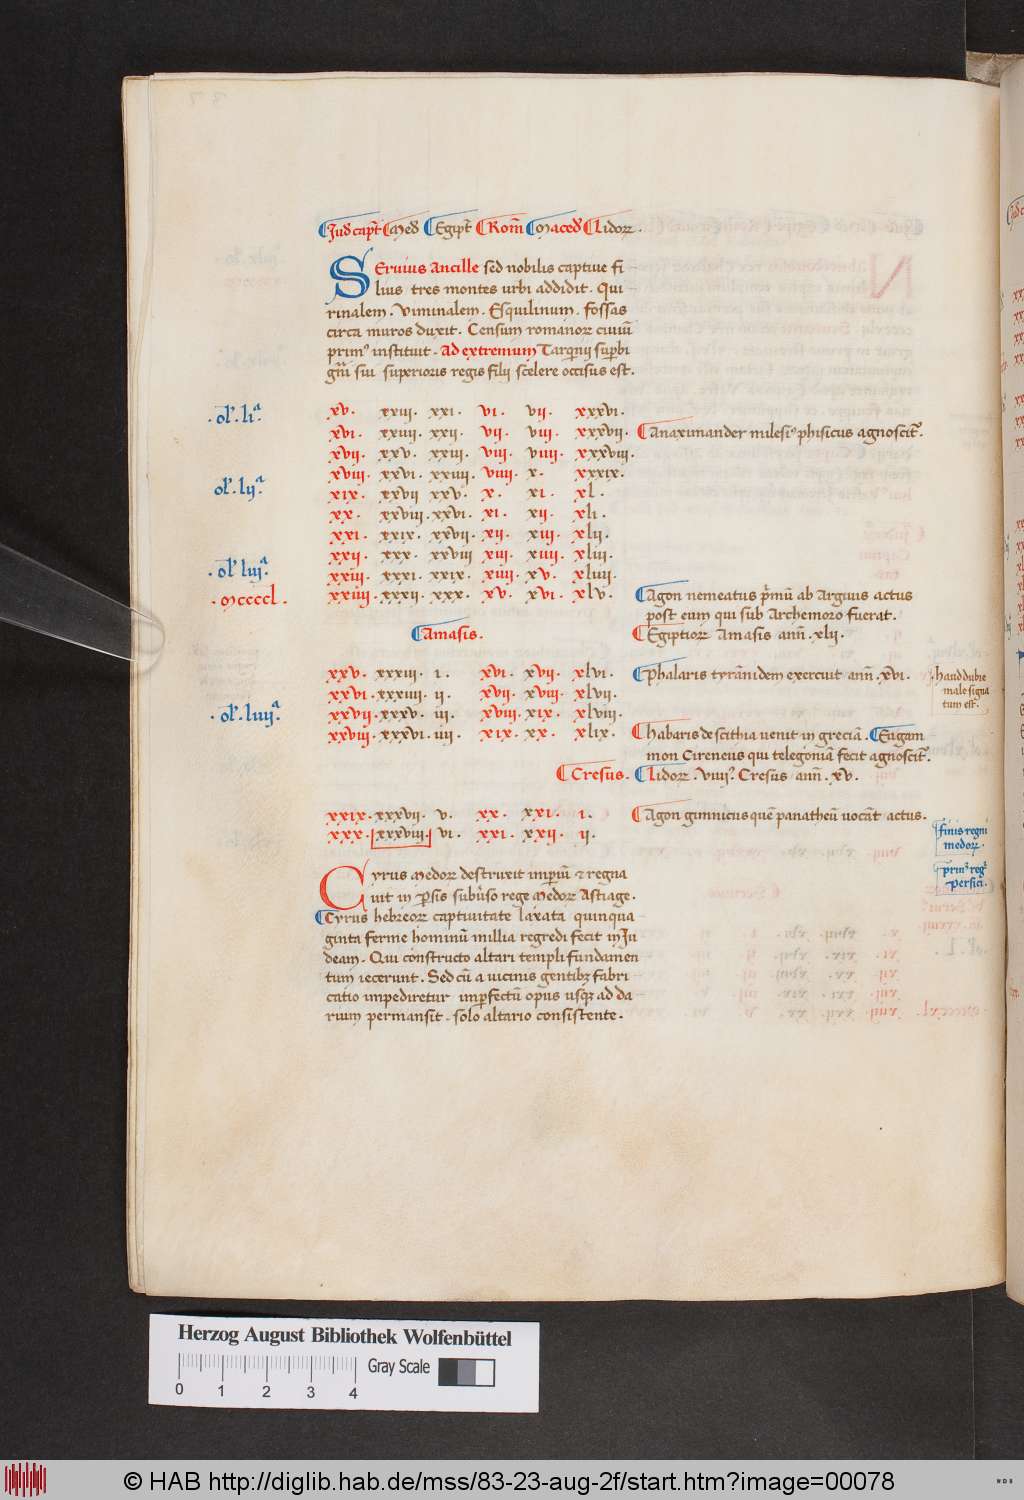 Jud capt̄ Med̄ Egipt̄ Rom̄ Maced̄ Lidoꝝ.
Seruius Ancille sed nobilis captiue fi
lius tres montes urbi addidit. Qui
rinalem. Viminalem. Esquilinum. fossas
circa muros duxit. Censum romanoꝝ ciuiū
primꝰ instituit. Ad extremum Tarqͥnij suꝑbi
gn̄i sui superioris regis filij scelere occisus est.
.ol'. li.ᵃ xv. xxiii. xxi. vi. vij. xxxvi.
xvi. xxiiii. xxij. vij. viii. xxxvij. Anaximander milesiꝰ phisicus agnoscit᷑.
xvij. xxv. xxiii. viii. viiii. xxxviii.
xviii. xxvi. xxiiii. viiii. x. xxxix.
ol'. lij.ᵃ xix. xxvij xxv. x. xi. xl.
xx. xxviii. xxvi. xi. xij. xli.
xxi. xxix. xxvij. xij. xiii. xlij.
xxij. xxx. xxviii xiii. xiiii. xliii.
.ol'. liii.ᵃ xxiii. xxxi. xxix. xiiii. xv. xliiii.
.mccccl. xxiiii. xxxij. xxx. xv. xvi. xlv. Agon nemeatus pͥmū ab Argiuis actus
post eum qui sub Archemoro fuerat.
Amasis. Egiptioꝝ Amasis ann̄. xlij.
xxv. xxxiii. i. xvi. xvij. xlvi. Phalaris tyrānidem exercuit ann̄. xvi. haud dubie
male signa
tum est.
xxvi. xxxiiii. ij. xvij. xviii. xlvij.
.ol'. liiii.ᵃ xxvij. xxxv. iii. xviii. xix. xlviii.
xxviii. xxxvi. iiii. xix. xx. xlix. Habaris de scithia uenit in greciā. Eugam
mon Cireneus qui telegoniā fecit agnoscit᷑.
Cresus. Lidoꝝ. viiii.ꝰ Cresus ann̄. xv.
xxix. xxxvij. v. xx. xxi. i. Agon gimnicus quē panatheū uocāt actus.
xxx. xxxviii. vi. xxi. xxij. ij.
finis regni
medoꝝ.
prim' reg'
persici.
Cyrus Medoꝝ destruxit imꝑiū & regna
uit in ꝑsis subuͥso rege Medoꝝ Astiage.
Cyrus hebreoꝝ captiuitate laxata quinqua
ginta ferme hominū millia regredi fecit in Iu
deam. Qui constructo altari templi fundamen
tum iecerunt. Sed cū a uicinis gentibꝫ fabri
catio impediretur imꝑfectū opus usqꝫ ad da
rium permansit. solo altario consistente.
Herzog August Bibliothek Wolfenbüttel
Gray Scale
0 1 2 3 4
© HAB http://diglib.hab.de/mss/83-23-aug-2f/start.htm?image=00078